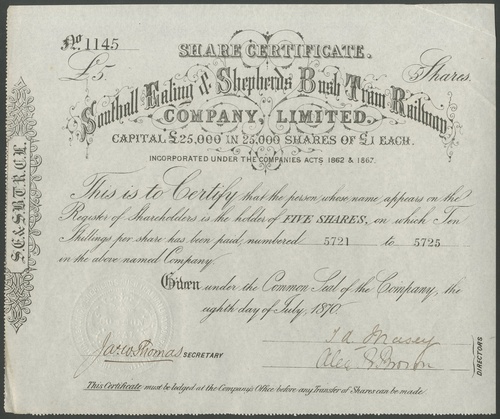 No. 1145
SHARE CERTIFICATE.
£5
5 Shares.
Southall Ealing & Shepherds Bush Tram Railway
COMPANY, LIMITED.
CAPITAL £25,000 IN 25,000 SHARES OF £1 EACH.
INCORPORATED UNDER THE COMPANIES ACTS 1862 & 1867.
This is to Certify that the person, whose name appears on the
Register of Shareholders is the holder of FIVE SHARES, on which Ten
Shillings per share has been paid, numbered 5721 to 5725
in the above named Company.
Given under the Common Seal of the Company, the
eighth day of July, 1870.
Jas. W. Thomas SECRETARY
DIRECTORS
This Certificate must be lodged at the Company's Office before any Transfer of Shares can be made
S. E. & S. B. T. R. C. L.